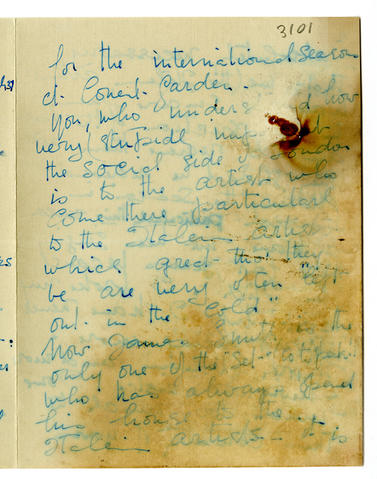 3101
for the international season
at Covent Garden.
You, who unders d how
very (stupidly)
the social side of London
is to the artist who
come there particularl
to the Italian artist
which great tho' they
be are very often left
out in the "cold"
Now is the
only one of the "Set"
who has always opened
his house to the
Italian artists - it is